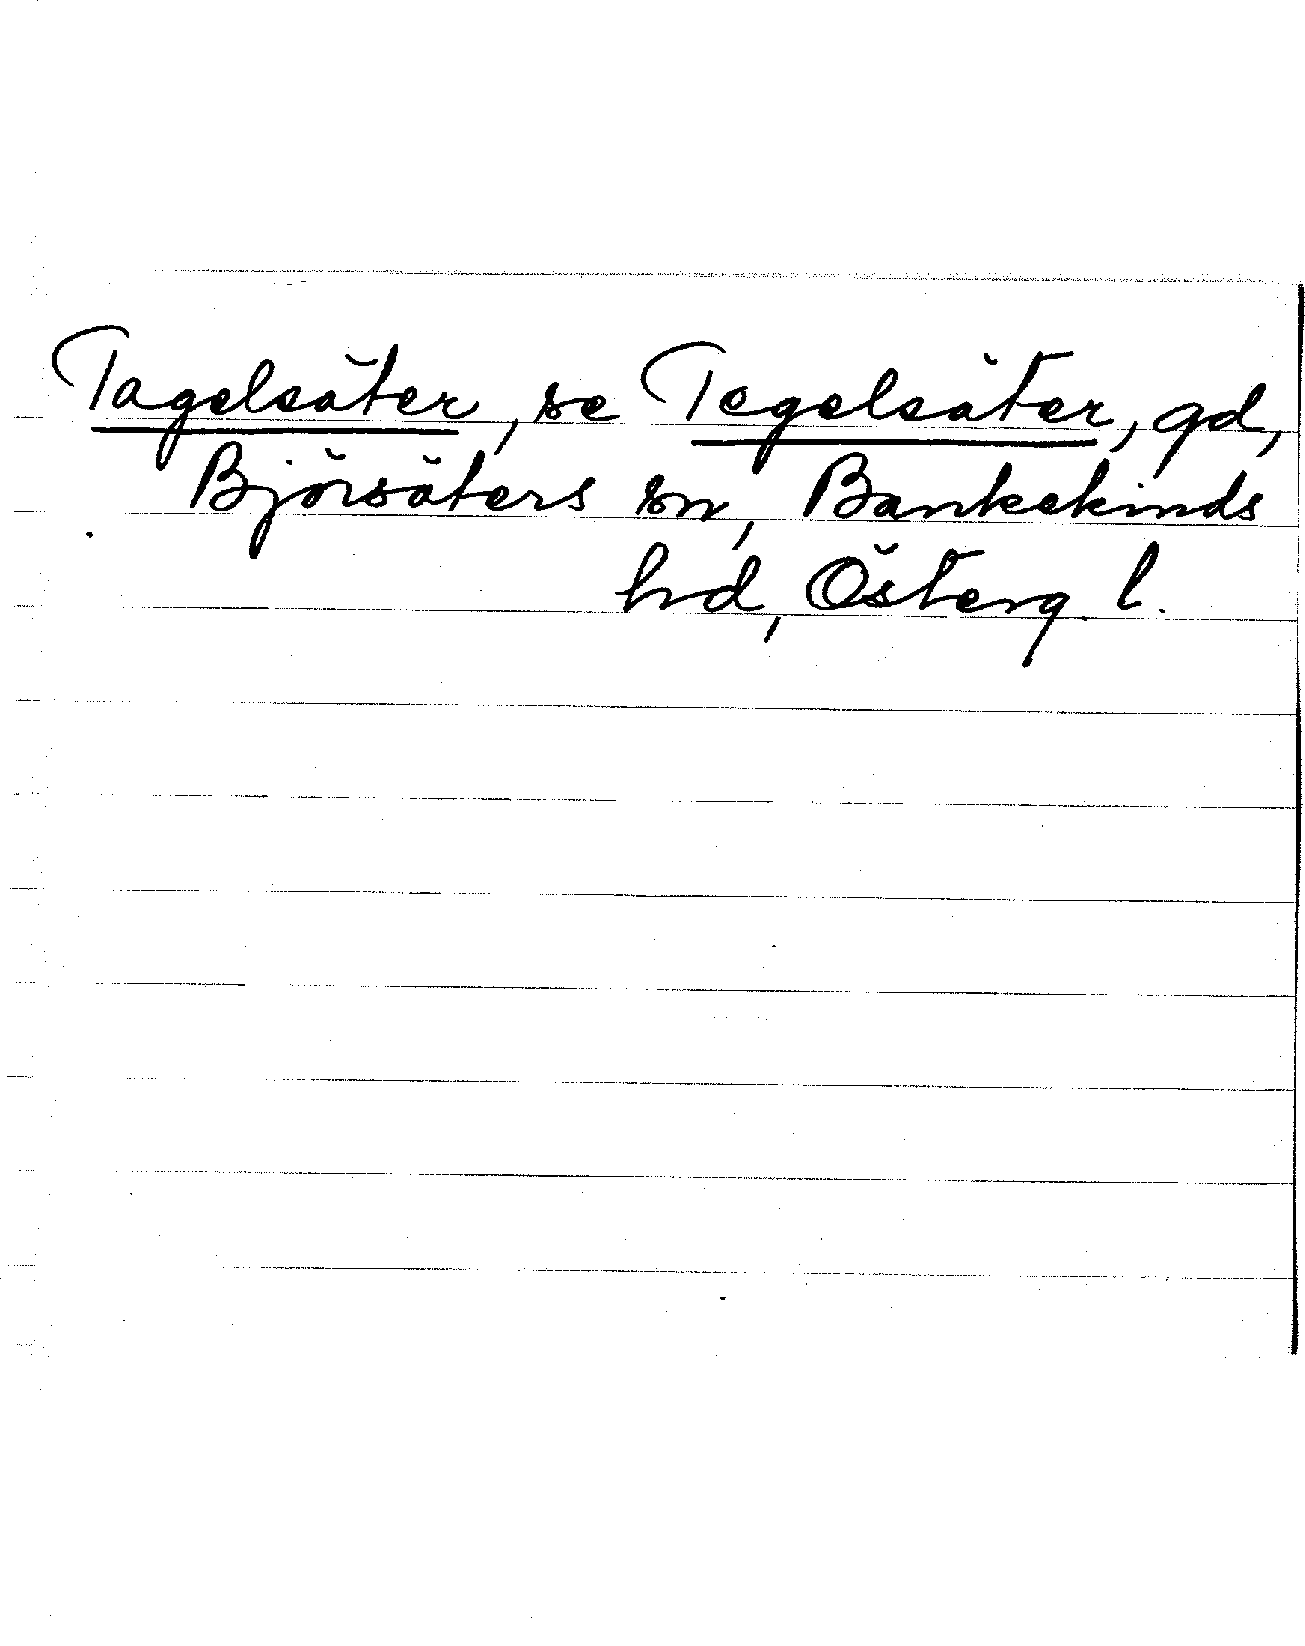 Tagelsäter, se Tegelsäter, gd,
Björsäters sn, Bankekinds
hd, Österg. l.